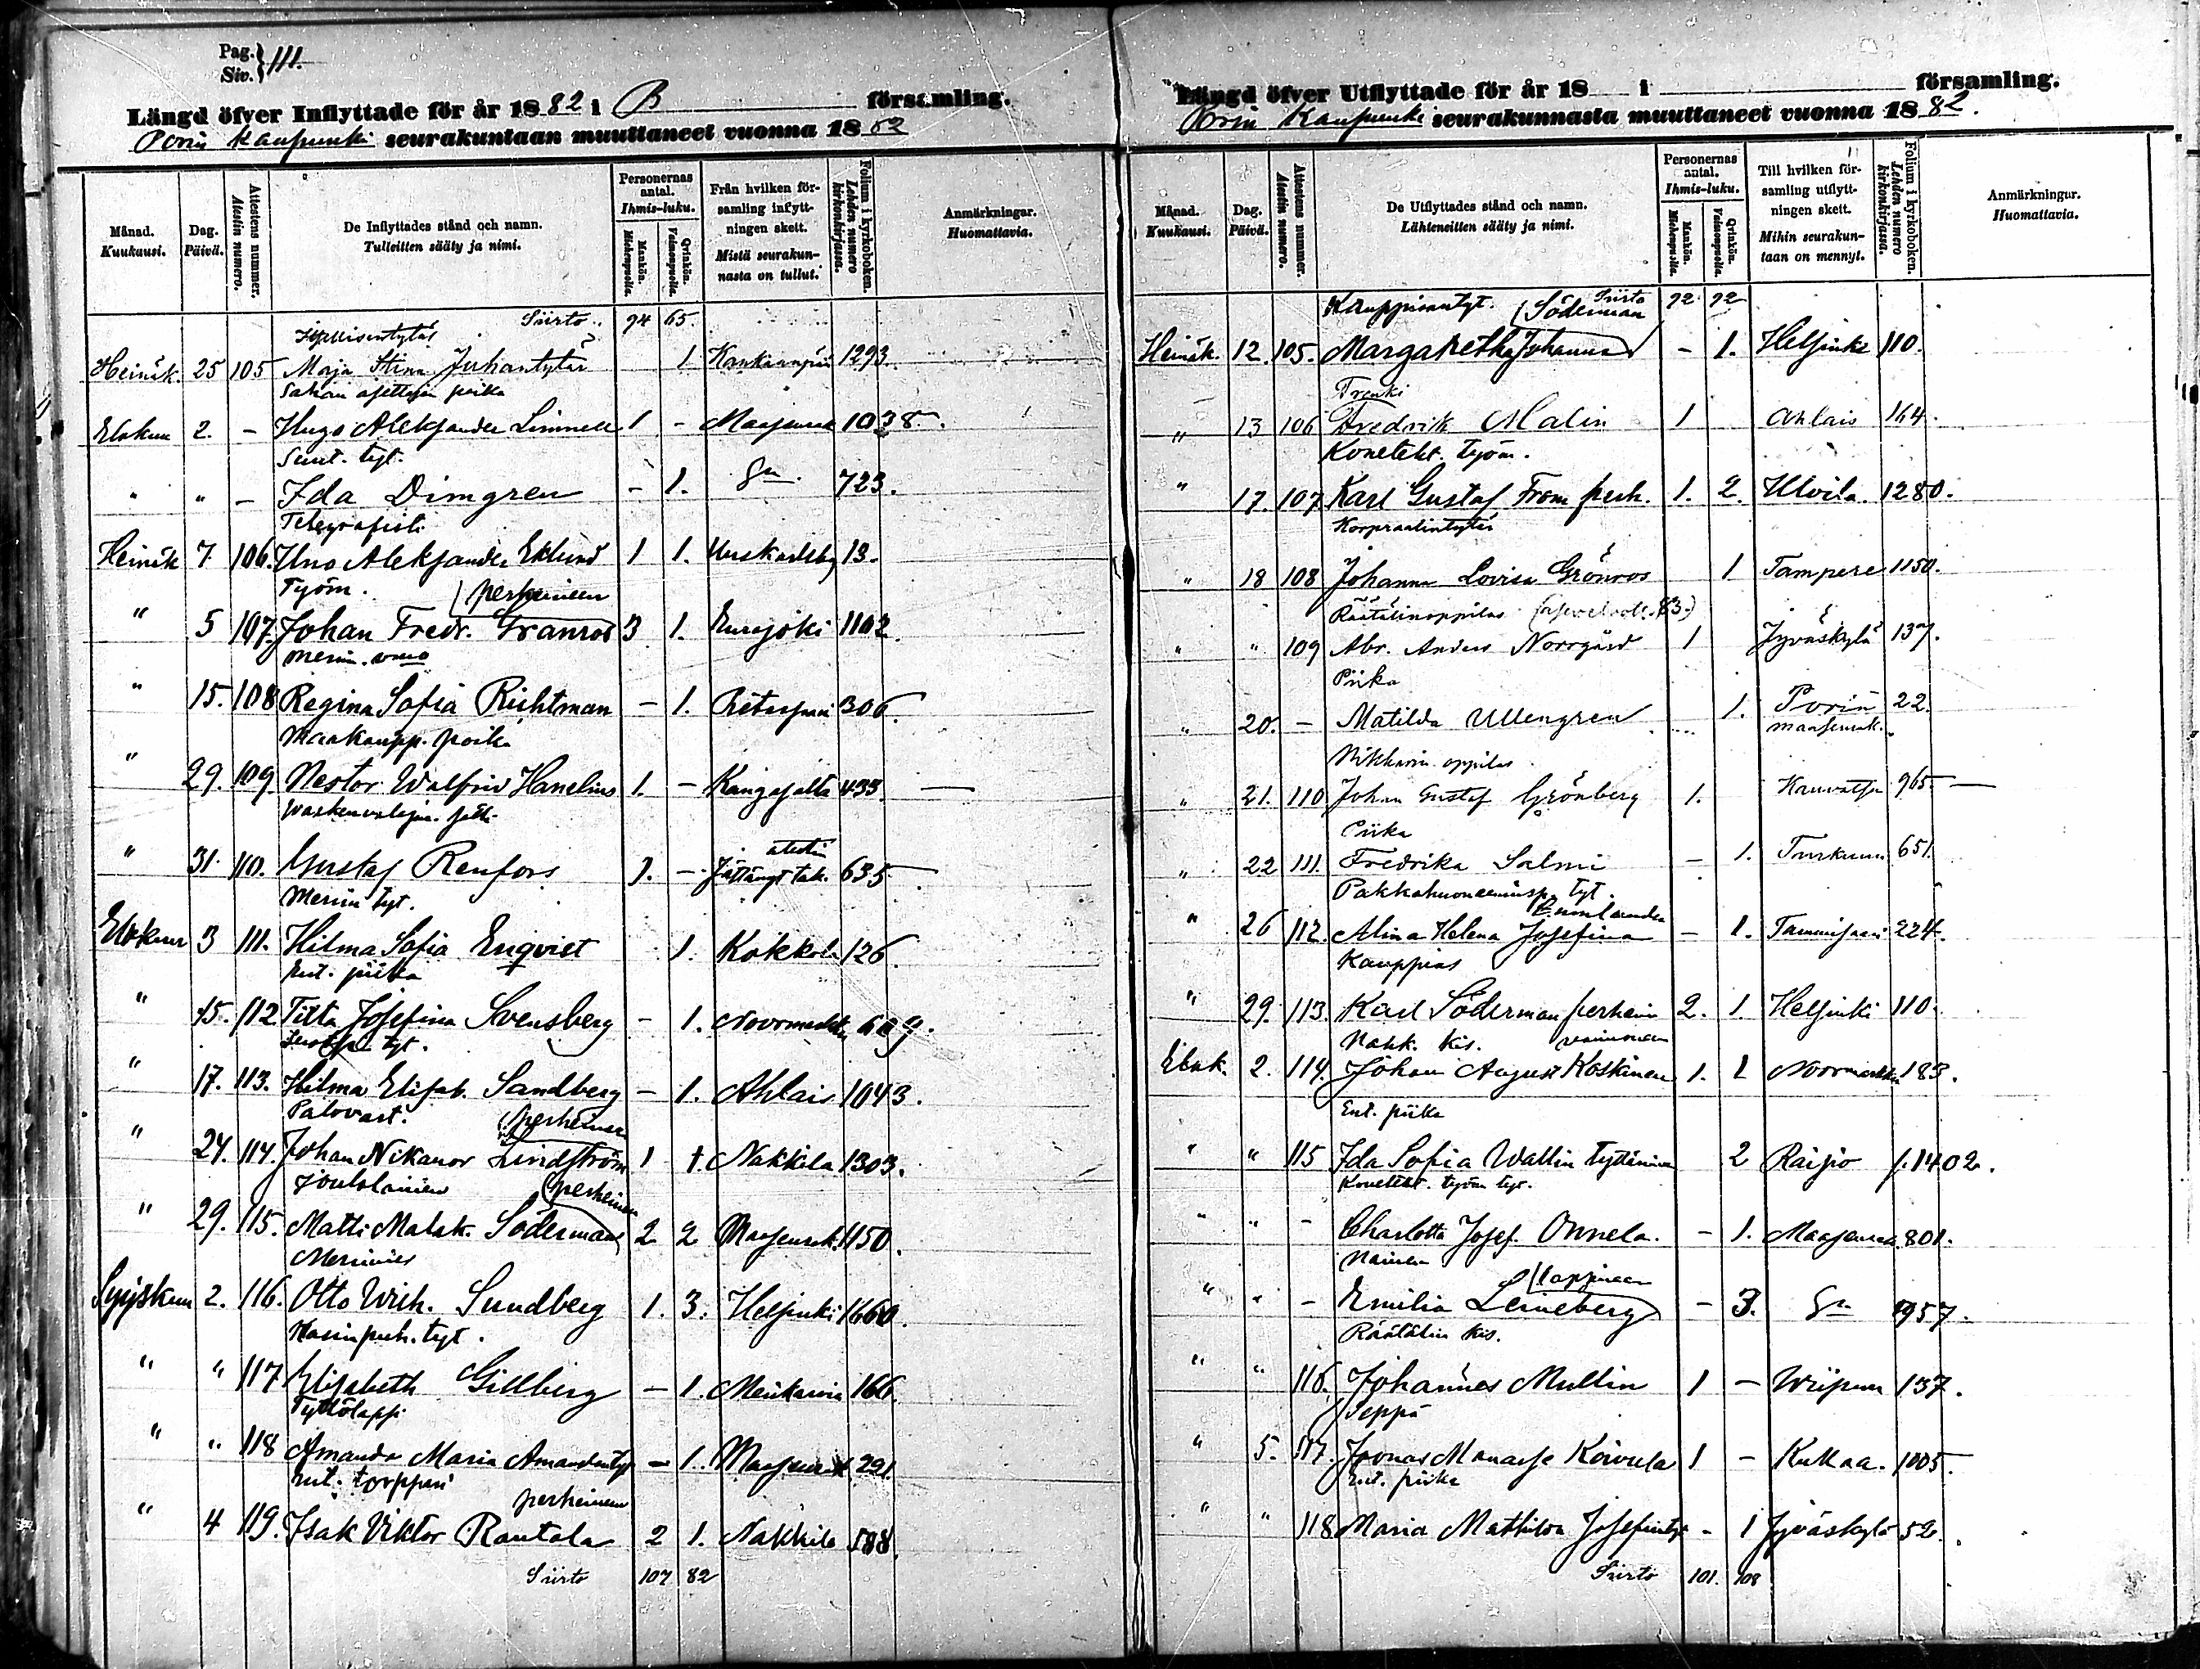 Pag. Siv. } 111.
Längd öfver Inflyttade för år 1882 i B församling.
Porin Kaupunki seurakuntaan muuttaneet vuonna 1882
Månad. Kuukausi. Dag. Päivä. Attestens nummer. Atestin numero. De Inflyttades stånd och namn. Tulleitten sääty ja nimi. Personernas antal. Ihmis-luku. Mankön. Miehenpuolia. Qvinkön. Vaimonpuolia. Från hvilken församling inflyttningen skett. Mistä seurakunnasta on tullut. Folium i kyrkoboken. Lehden numero kirkonkirjassa. Anmärkningar. Huomattavia.
Siirto 94 65.
Itsellisentytär
Heinäk. 25 105 Maja Stina Juhantytär 1 Kankaanpää 1293.
Sahan asettajan poika
Elokuu 2. - Hugo Aleksander Limnell 1 - Maaseurak 1038.
Suut. tyt.
" " - Ida Dimgren - 1. 723.
Telegrafisti
Heinäk 7 106. Uno Aleksander Eklund 1 1. Uuskarleby 13.
Työm. perheineen
" 5 107. Johan Fredr. Granros 3 1. Eurajoki 1102.
Merim. vaimo
" 15. 108 Regina Sofia Richtman - 1. 306.
Maakaupp. poika
" 29. 109. Nestor Walfrid Hanelius 1. - Kangasalta 433.
Waskenvalajan
" 31. 110. Gustaf Renfors 1. - atestin Jättänyt tak. 635
Merim tyt.
Elokuu 3 111. Hilma Sofia Enqvist 1. Kokkola 126.
Ent. piika
" 15. 112 Titta Josefina Svensberg - 1. Noormarkku 609.
tyt.
" 17. 113. Hilma Elisab. Sandberg - 1. Ahlais 1043.
Palovart. perheineen
" 24. 114. Johan Nikanor Lindström 1 1. Nakkila 1303.
Joutolainen perheineen
" 29. 115. Matti Malak. Söderman 2 2 Maaseurak. 1150.
Merimies
Syyskuu 2. 116. Otto Wilh. Sundberg 1. 3. Helsinki 1660.
tyt.
" " 117 Elisabeth Gillberg - 1. Merikarvia 166.
Tyttölapsi
" " 118 Amanda Maria Amandantyt - 1. Maaseurak 291.
Ent. torppari perheineen
" 4 119. Isak Viktor Rantala 2 1. Nakkila 588.
Siirto 107 82
Längd öfver Utflyttade för år 18 i församling.
Porin Kaupunki seurakunnasta muuttaneet vuonna 1882.
Månad. Kuukausi. Dag. Päivä. Attestens nummer. Atestin numero. De Utflyttades stånd och namn. Lähteneitten sääty ja nimi. Personernas antal. Ihmis-luku. Mankön. Miehenpuolia. Qvinkön. Vaimonpuolia. Till hvilken församling utflyttningen skett. Mihin seurakuntaan on mennyt. Folium i kyrkoboken. Lehden numero kirkonkirjassa. Anmärkningar. Huomattavia.
Siirto 92 92
Kauppiaantyt. Söderman
Heinäk. 12. 105. Margaretha Johanna - 1. Helsinki 110.
Trenki
" 13 106 Fredrik Malin 1 Ahlais 164.
Koneteht. työm.
" 17. 107. Karl Gustaf From perh. 1. 2. Ulvila. 1280.
Korpraalintytär
" 18 108 Johanna Lovisa Grönros 1 Tampere 1150.
Räätälinoppilas
" " 109 Abr. Anders Norrgård 1 Jyväskylä 137.
Piika
" 20. - Matilda Ullengren 1. Porin maaseurak. 22.
Nikkarin oppilas
" 21. 110 Johan Gustaf Grönberg 1. Kauvatsa 965.
Piika
" 22 111. Fredrika Salmi - 1. Turkuun 651.
Pakkahuoneeninsp. tyt.
" 26 112. Alina Helena Josefina - 1. Tammisaari 224.
Kauppias
" 29. 113. Karl Söderman perhein 2. 1. Helsinki 110.
Nahk. kis. vaimoineen
Elok. 2. 114. Johan August Koskinen 1. 1 Noormarkku 183.
Ent. piika
" " 115 Ida Sofia Wallin tyttäninen 2 Raisio 1402.
Koneteht. työm tyt.
" " - Charlotta Josef. Onnela. - 1. Maaseurak. 801.
Nainen lapsineen
" " - Emilia Leineberg - 3. 957.
Räätälin kis.
" " 116. Johannes Mullin 1 - Wiipuri 137.
Seppä
" 5. 117. Joonas Manasse Koivula 1 - Kullaa. 1005.
Ent. piika
" " 118 Maria Mathilda Josefintyt - 1 Jyväskylä 52.
Siirto 101. 108